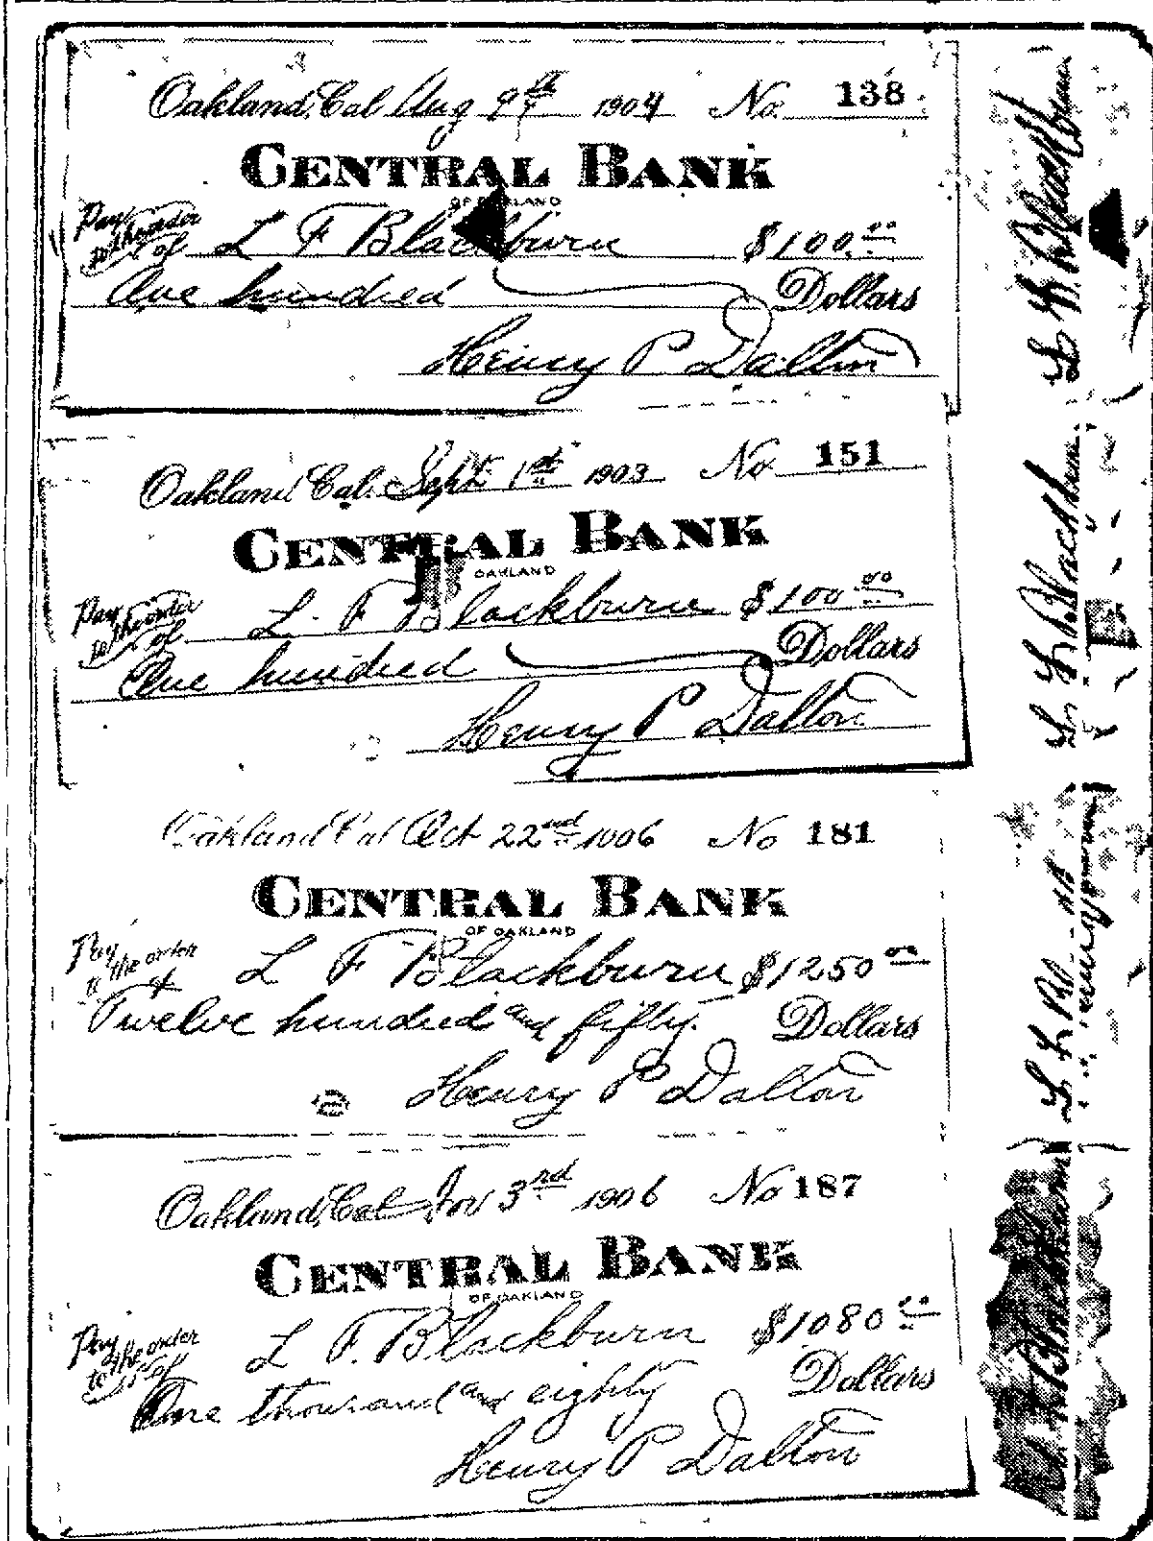 Oakland, Cal Aug 9th 1904 No. 138
CENTRAL BANK
OF OAKLAND
Pay to the order of L F Blackburn $100.00
One hundred Dollars
Henry P Dalton
Oakland Cal. Sept. 1st 1903 No. 151
CENTRAL BANK
OAKLAND
Pay to the order of L. F Blackburn $100.00
One hundred Dollars
Henry P Dalton
Oakland Cal Oct 22nd 1906 No 181
CENTRAL BANK
OF OAKLAND
Pay to the order of L F Blackburn $1250.00
Twelve hundred and fifty Dollars
Henry P Dalton
Oakland, Cal Nov 3rd 1906 No 187
CENTRAL BANK
OF OAKLAND
Pay to the order of L F. Blackburn $1080.00
One thousand and eighty Dollars
Henry P Dalton
L F Blackburn
L. F. Blackburn
L F
L F Blackburn